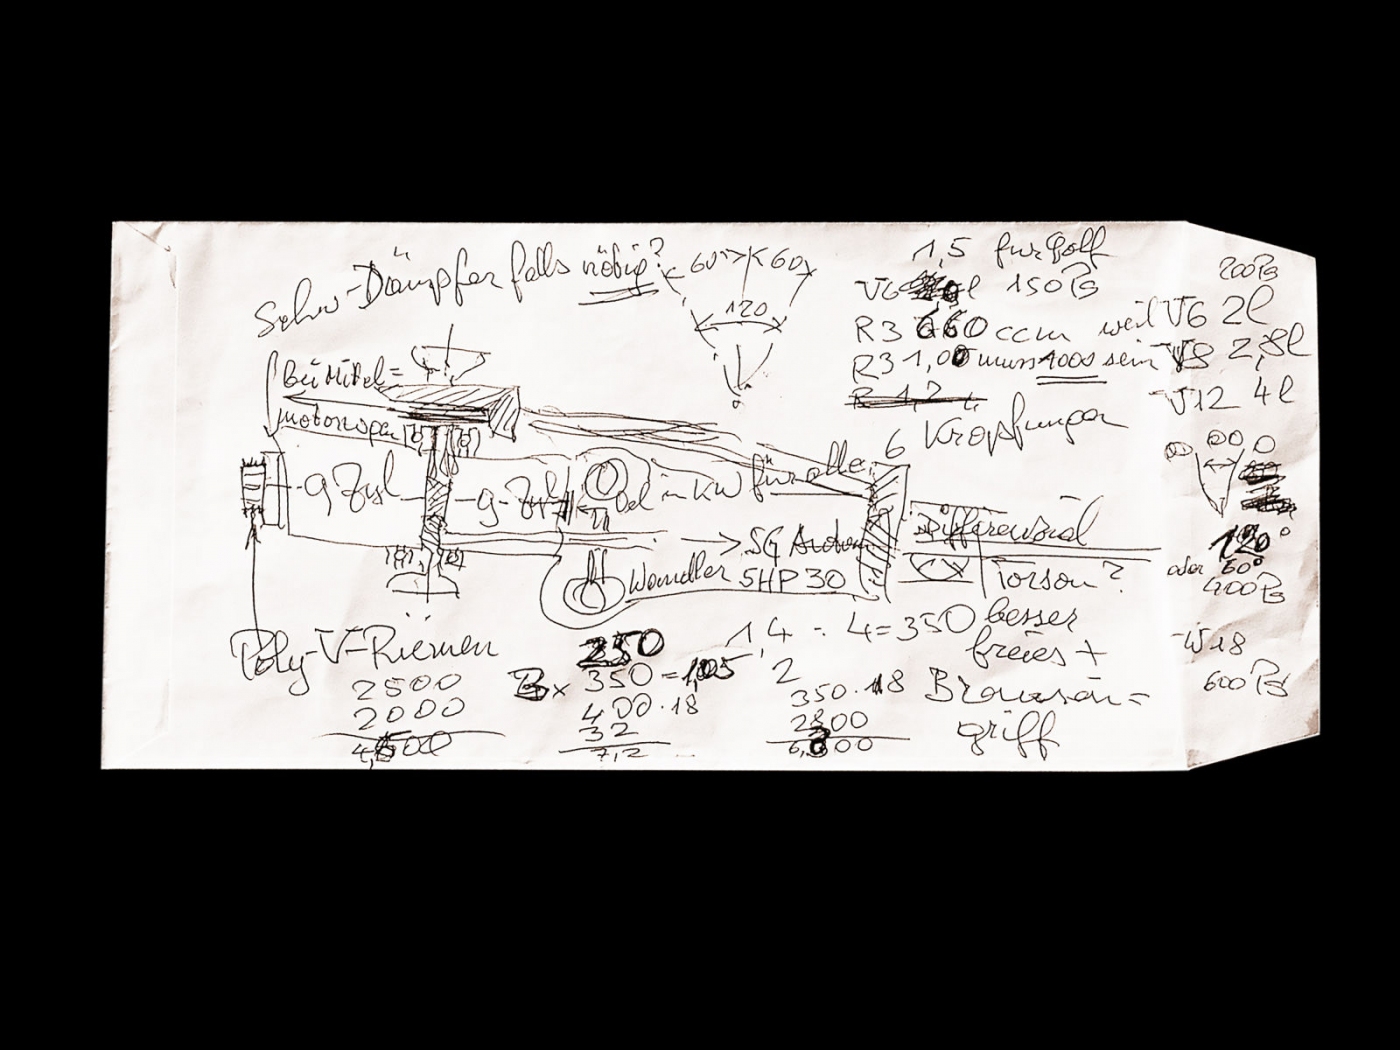 Schw-Dämpfer falls nötig?
60° 60
120
1,5 fur Golf
V6 l 150 PS
R3 660 ccm weil V6 2l
R3 1,00 muss 1000 sein V8 2,8l
R 1,2
V12 4l
200 PS
6 Kröpfungen
Bei Mittel=
motorwagen
9 Zyl
9-Zyl
Oel in KW für alle
SG Autom
Wandler 5HP30
Differenzial
Torson?
besser
freies +
Browson=
griff
120°
oder 60°
400 PS
W18
600 PS
Poly-V-Riemen
2500
2000
4,500
250
350 = 1,05
400 · 18
32
7,2
1,4 : 4 = 350
2
350 · 18
2800
6,300